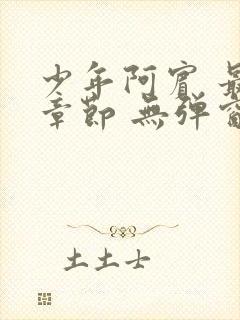 少年阿賓 最
章節 無弹窗
土土士